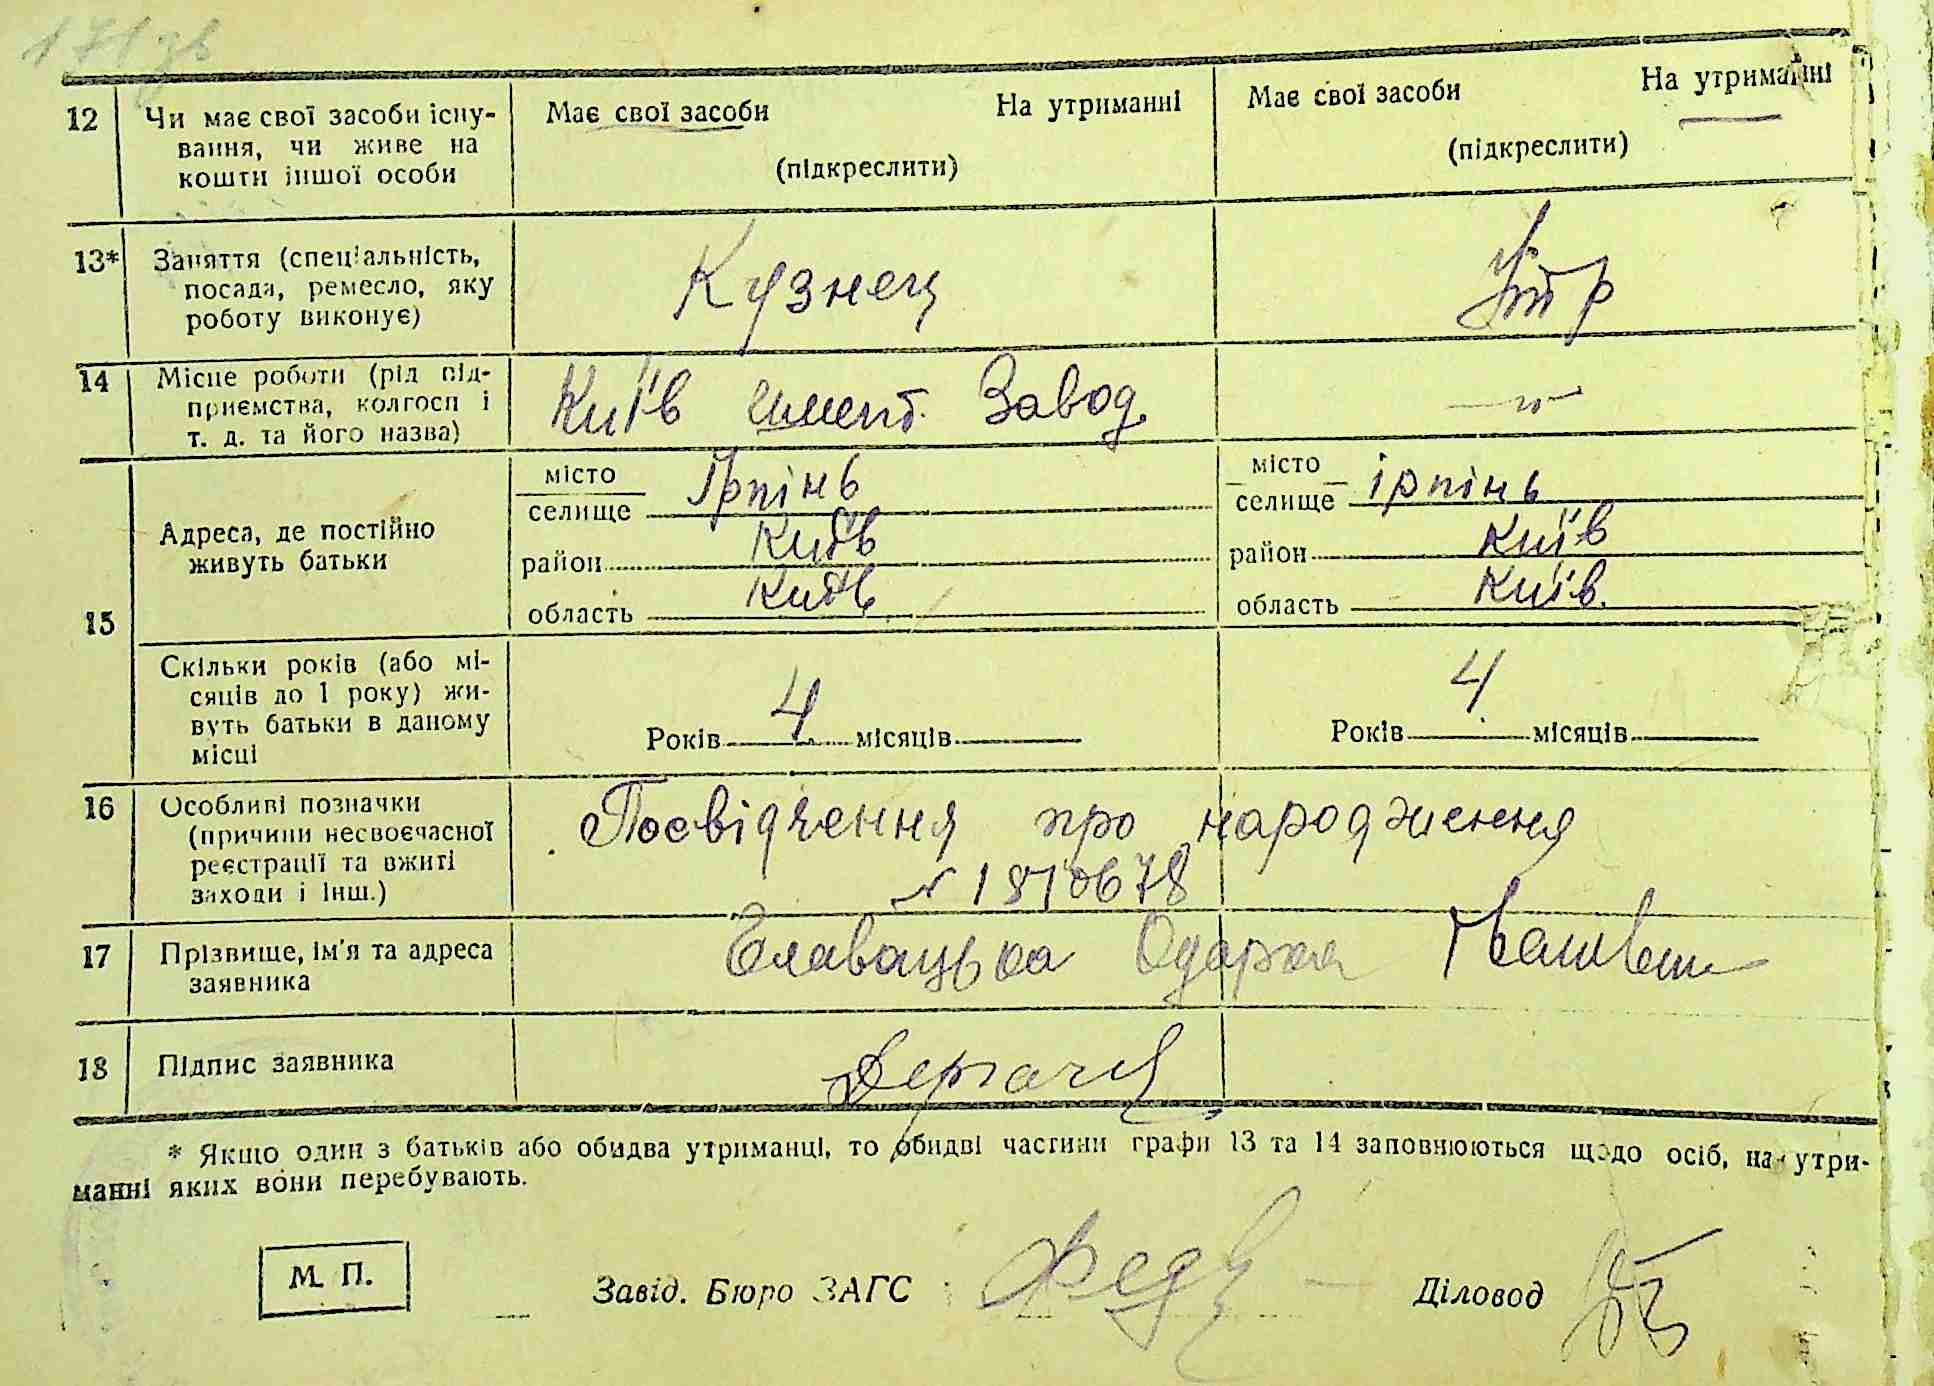 171зв
12 Чи має свої засоби існу-
вання, чи живе на
кошти іншої особи
Має свої засоби На утриманні
(підкреслити)
Має свої засоби На утриманні
(підкреслити)
13* Заняття (спеціальність,
посада, ремесло, яку
роботу виконує)
Кузнец
Утр
14 Місце роботи (рід під-
приємства, колгосп і
т. д. та його назва)
Київ Завод
15 Адреса, де постійно
живуть батьки
місто
селище Ірпінь
район Київ
область Київ
місто
селище ірпінь
район Київ
область Київ.
Скільки років (або мі-
сяців до 1 року) жи-
вуть батьки в даному
місці
Років 4 місяців
Років 4 місяців
16 Особливі позначки
(причини несвоєчасної
реєстрації та вжиті
заходи і інш.)
Посвідчення про народження
№ 1810678
17 Прізвище, ім'я та адреса
заявника
Главацька Одарка
18 Підпис заявника
* Якщо один з батьків або обидва утриманці, то обидві частини графи 13 та 14 заповнюються щодо осіб, на утри-
манні яких вони перебувають.
М. П.
Завід. Бюро ЗАГС
Діловод